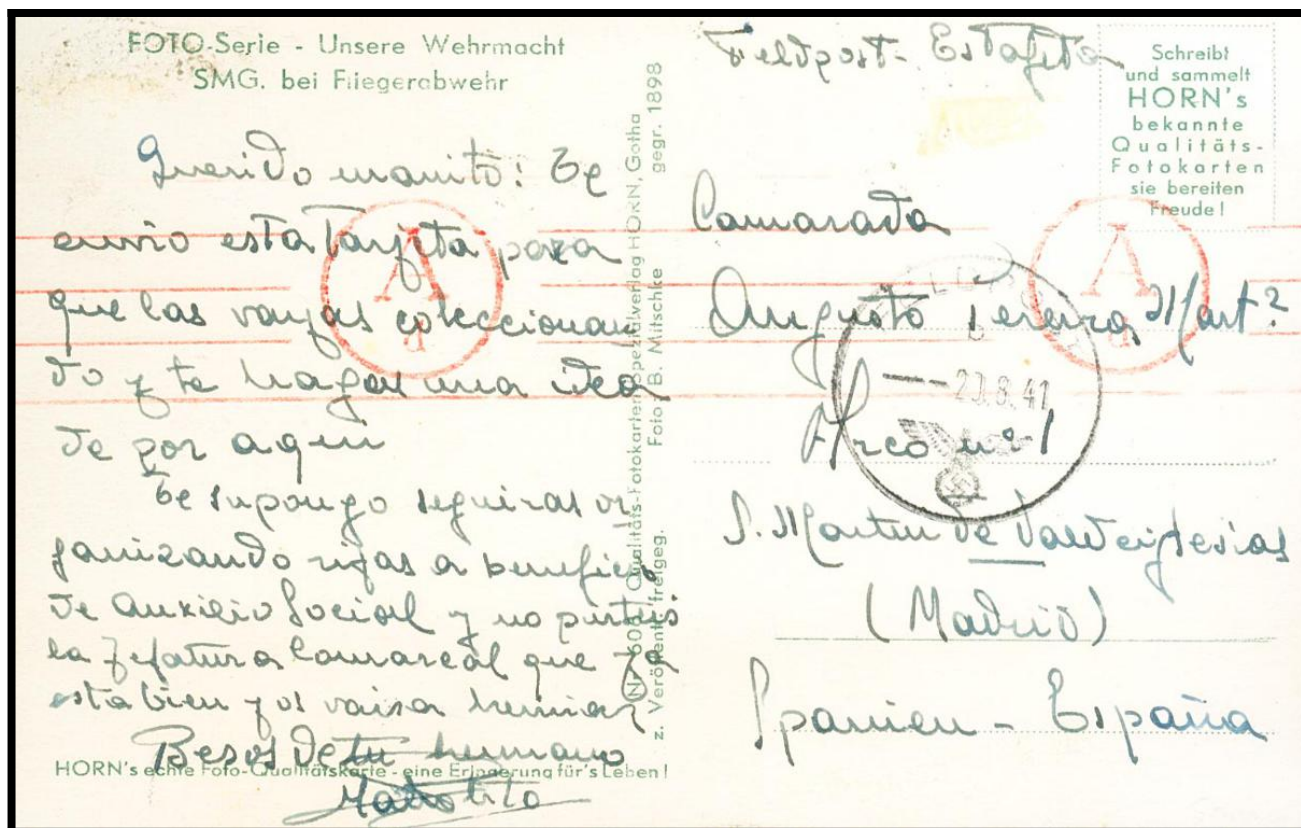 FOTO-Serie - Unsere Wehrmacht
SMG. bei Fliegerabwehr
Querido manito: Te
envio esta tarjeta para
que las vayas coleccionan
do y te hagas una idea
de por aqui
Te supongo seguiras or
ganizando rifas a beneficio
de Auxilio Social y no
la Jefatura Comarcal que ya
esta bien y os vais a herniar
Besos de tu hermano
HORN's echte Foto-Qualitätskarte - eine Erinnerung für's Leben!
Nr. 606 Qualitäts-Fotokarten Spezialverlag HORN, Gotha
z. Veröffentl. freigeg. Foto B. Mitschke gegr. 1898
Feldpost - Estafeta
Schreibt
und sammelt
HORN's
bekannte
Qualitäts-
Fotokarten
sie bereiten
Freude!
Camarada
Augusto Mart?
Arco nº 1
S. Martin de Valdeiglesias
(Madrid)
Spanien - España
A
d
A
d
FELDPOST
b
8.41